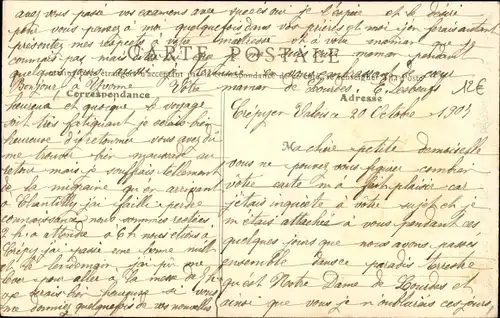 avez vous passé vos examens avec succès oui je l'espère et le désire
pour vous pensez à moi quelquefois dans vos prières et moi j'en ferais autant
présentez mes respects à votre maîtresse et à votre maman
CARTE POSTALE
connais pas mais
quelques jours
Correspondance
Adresse
12€
Bonjour à Yvonne Votre maman de Lourdes E.
Crépy en Valois 20 Octobre 190
Ma chère petite demoiselle
vous ne pouvez vous figurer combien
votre carte m'a fait plaisir car
j'étais inquiète à votre sujet et je
m'étais attachée à vous pendant ces
quelques jours que nous avons passés
ensemble dans ce paradis terrestre
qu'est Notre Dame de Lourdes et
ainsi que vous je n'oublierai ces jours
heureux et quoique le voyage
soit très fatiguant je serais bien
heureuse d'y retourner vous avez dû
me trouver bien maussade au
retour mais je souffrais tellement
de la migraine qu'en arrivant
à Chantilly j'ai failli perdre
connaissance nous sommes restées
2 h a attendre à 6 h nous étions à
Crépy j'ai passé une bonne nuit
et le lendemain j'ai pu me
lever pour aller à la messe de 7 h
je serais bien heureuse si vous
me donniez quelquefois de vos nouvelles